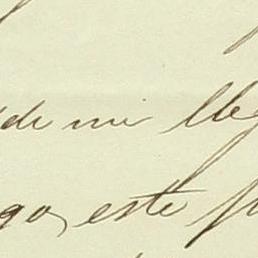 de mi lle
go, este